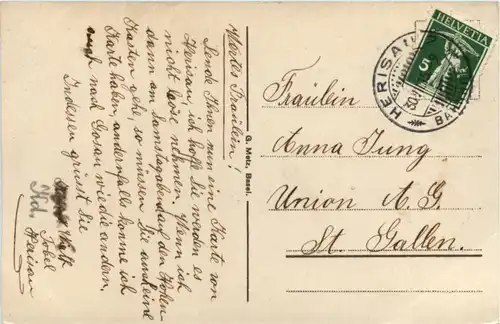 Wertes Fräulein!
Sende Ihnen nun eine Karte von
Herisau, ich hoffe Sie werden es
nicht böse nehmen, Wenn ich
dann am Samstagabend auf den Hohen-
Kasten gehe, so müssen Sie auch eine
Karte haben, andernfalls komme ich
nach Gossau wie die andern.
Indessen grüsst Sie
Tobel
Herisau
G. Metz, Basel.
HELVETIA
5
HERISAU
Fräulein
Anna Jung
Union A. G.
St. Gallen.